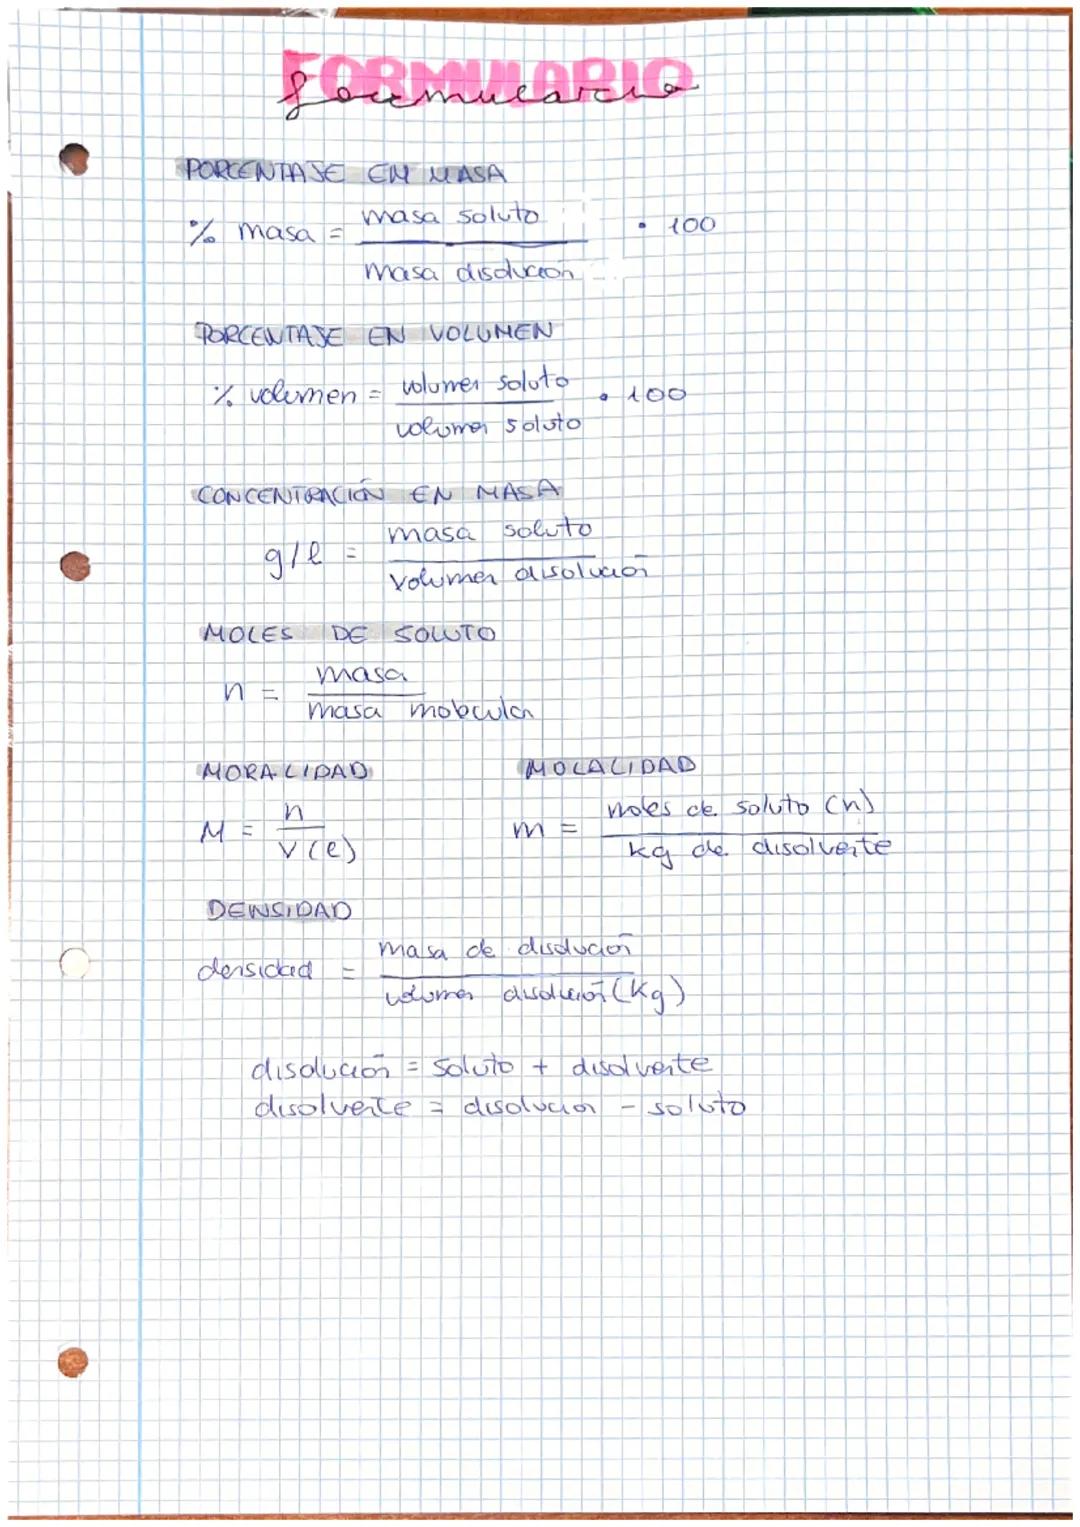 FORMULARIO
formulario
PORCENTAJE EN MASA
% masa = masa soluto / masa disolución · 100
PORCENTAJE EN VOLUMEN
% volumen = volumen soluto / volumen soluto · 100
CONCENTRACIÓN EN MASA
g/l = masa soluto / volumen disolución
MOLES DE SOLUTO
n = masa / masa molecular
MORALIDAD MOLALIDAD
M = n / V (l) m = moles de soluto (n) / kg de disolvente
DENSIDAD
densidad = masa de disolución / volumen disolución (kg)
disolución = soluto + disolvente
disolvente = disolución - soluto